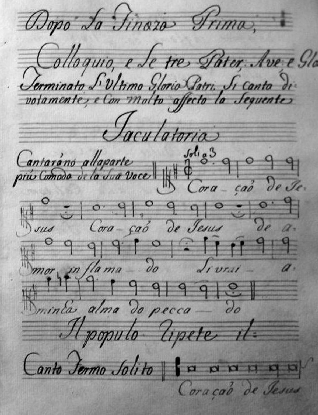 Dopo La Finaza Prima,
Colloquio, e Le tre Pater. Ave e Glo
Terminato L'Ultimo Gloria Patri. Si canta di-
votamente, e Con molto affecto la Sequente
Jaculatoria
Cantaráno allaparte
piu Comoda de la Sua Voce
Soli a 3
Cora - çaõ de Je-
sus Cora - çaõ de Jesus de a-
mor inflama - do Livrai - a-
minha alma do pecca - do
Il populo ripete il-
Canto Fermo Solito
Coraçaõ de Jesus